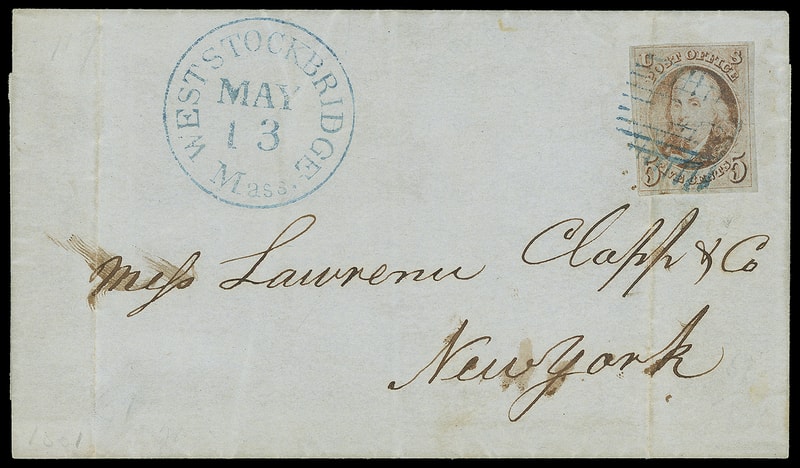 WEST STOCKBRIDGE
MAY
13
Mass.
U S
POST OFFICE
FIVE CENTS
5 5
Mess Lawrence Clapp & Co
New York